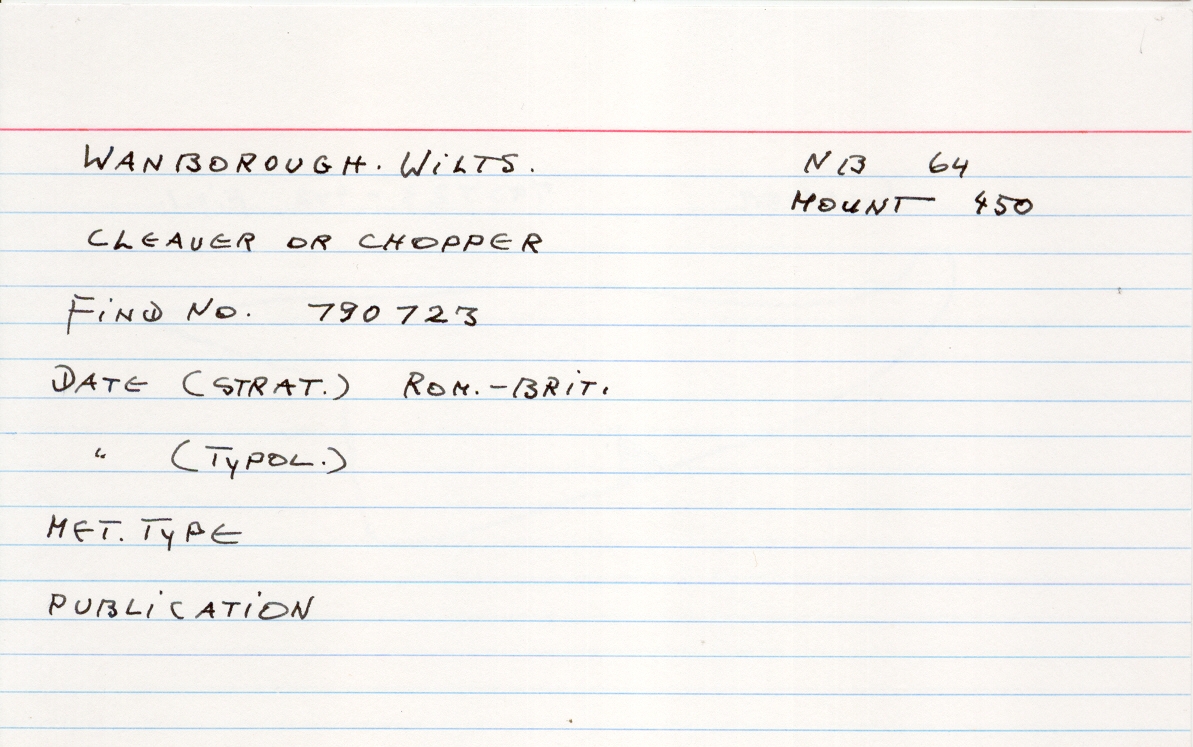 WANBOROUGH. WILTS. NB 64
MOUNT 450
CLEAVER OR CHOPPER
FIND NO. 790723
DATE (STRAT.) ROM.-BRIT.
" (TYPOL.)
MET. TYPE
PUBLICATION